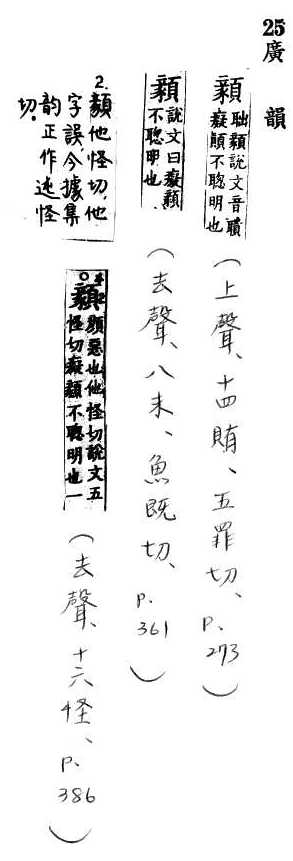 25廣韻
顡 聉顡說文音聵癡顛不聰明也 (上聲、十四賄、五罪切、P.273)
顡 說文曰癡顡不聰明也 (去聲、八未、魚既切、P.361)
顡 顡惡也他怪切說文五怪切癡顡不聰明也一 (去聲、十六怪、P.386)
2.顡他怪切,他字誤,今據集韵正作迍怪切。